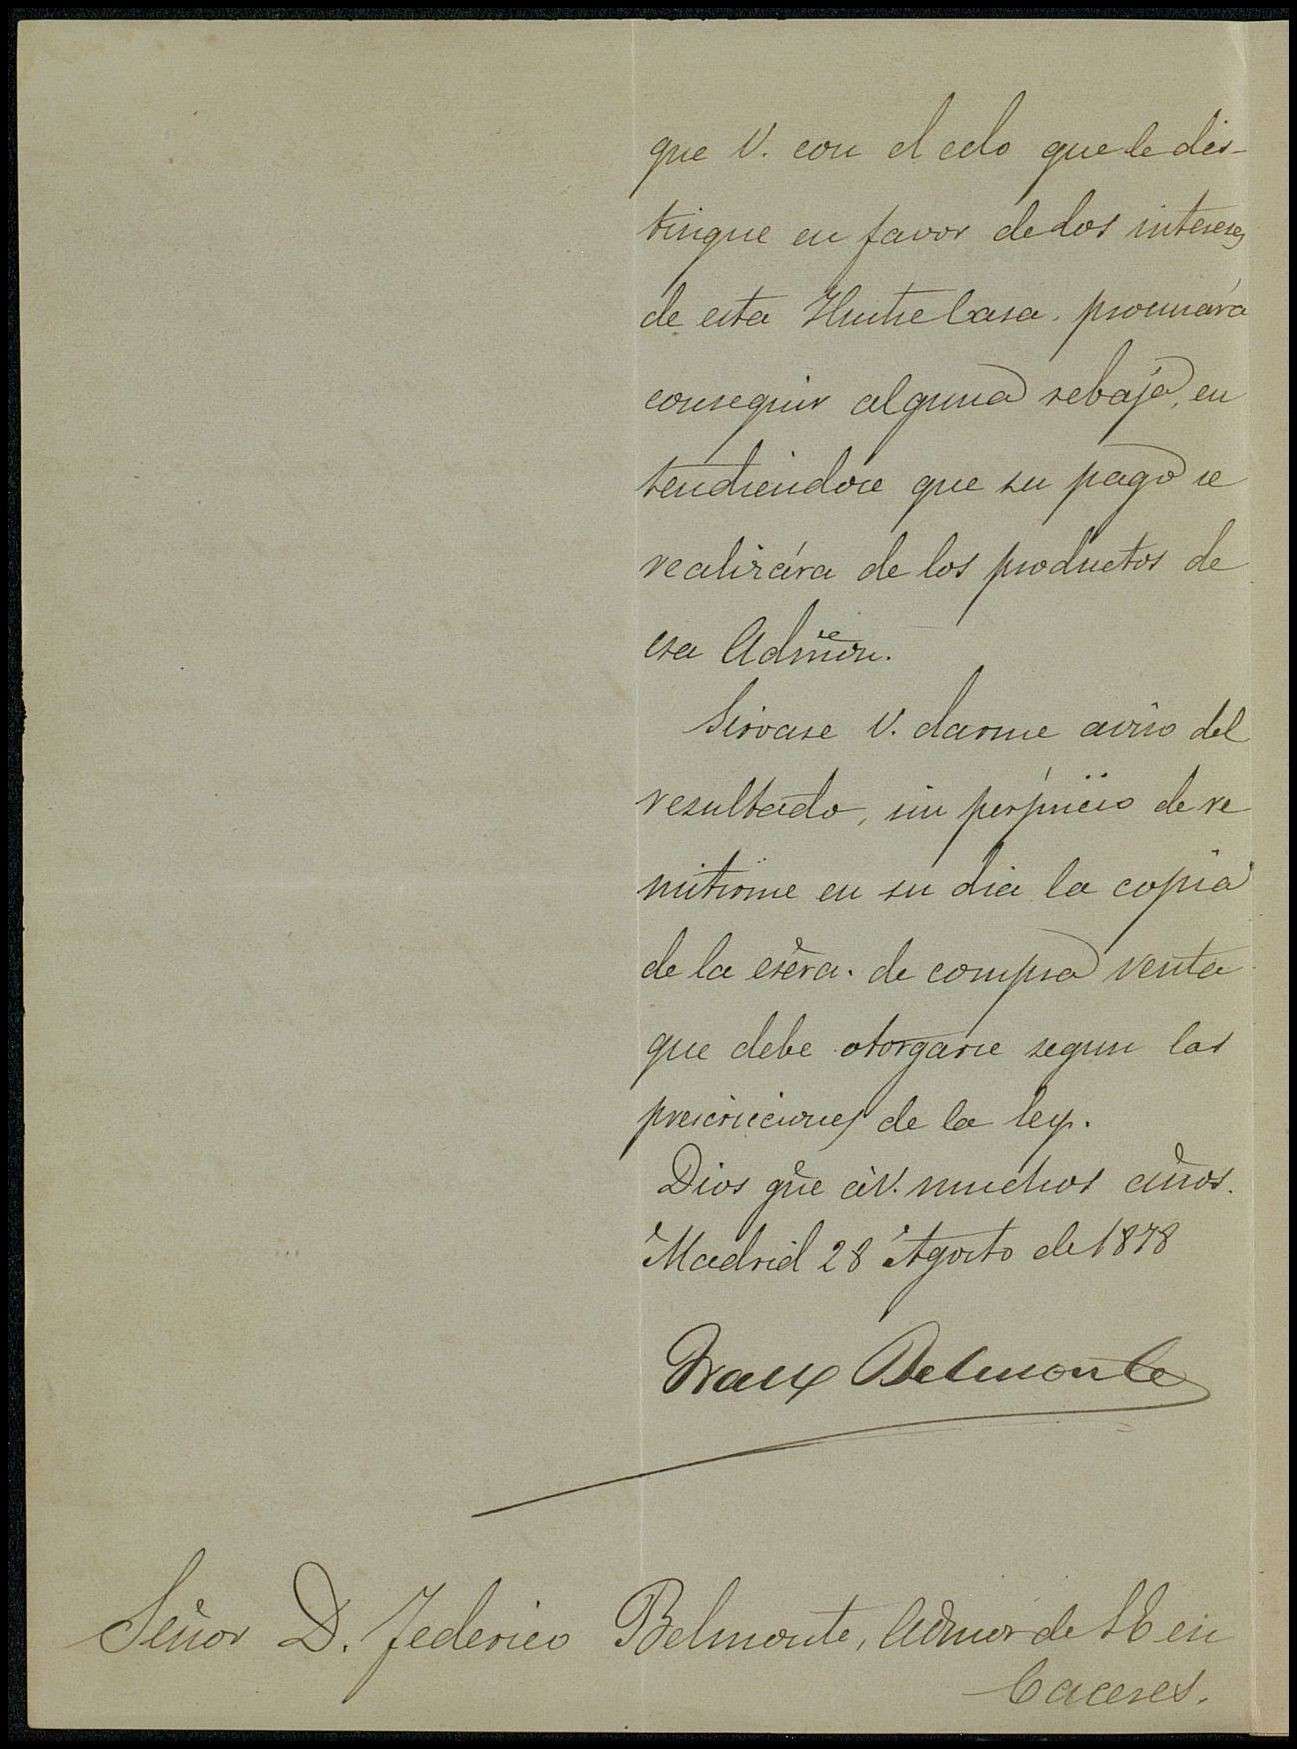 que V. con el celo que le dis-
tingue en favor de los intereses
de esta Ilustre Casa. procurára
conseguir alguna rebaja, en
tendiendose que su pago se
realizára de los productos de
esa Admon.
Sirvase V. darme aviso del
resultado, sin perjuicio de re
mitirme en su dia la copia
de la escra. de compra venta
que debe otorgarse segun las
prescricciones de la ley.
Dios gue á V. muchos años.
Madrid 28 Agosto de 1878
Belmonte
Señor D. Federico Belmonte, Admor de S E en
Caceres.